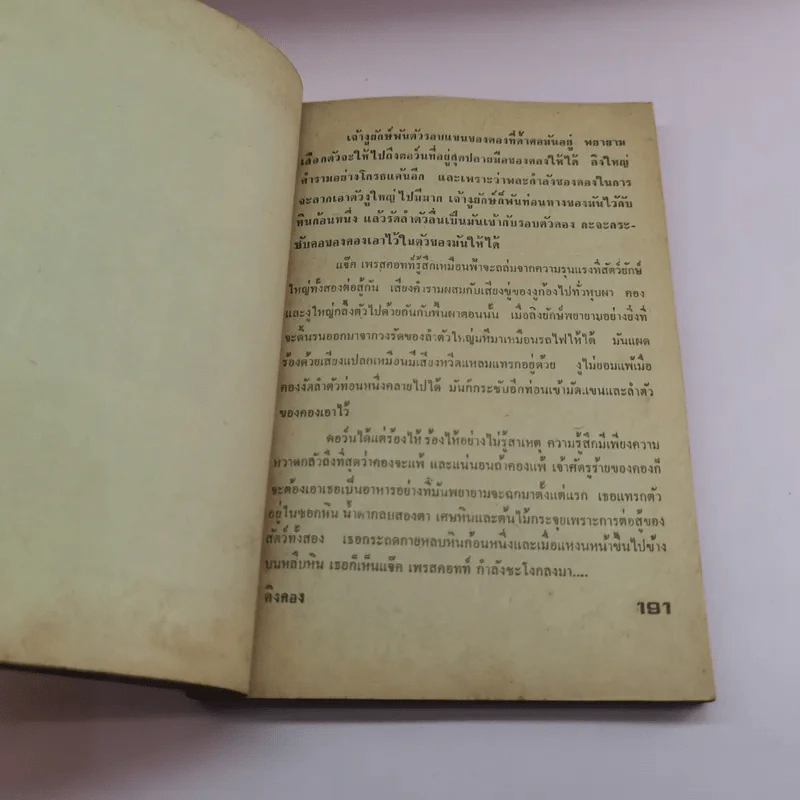 เจ้างูยักษ์พันตัวรอบแขนของคองที่คว้าคอมันอยู่ พยายาม
เลือกตัวจะให้ไปถึงดอว์นที่อยู่สุดปลายมือของคองให้ได้ ลิงใหญ่
คำรามอย่างโกรธแค้นอีก และเพราะว่าพละกำลังของคองในการ
จะลากเอาตัวงูใหญ่ไปมีมาก เจ้างูยักษ์ก็พันท่อนหางของมันไว้กับ
หินก้อนหนึ่ง แล้วรัดลำตัวอื่นเป็นมันเข้ากับรอบตัวคอง กะจะกระ-
ชับคอของคองเอาไว้ในตัวของมันให้ได้
แจ๊ค เพรสคอทท์รู้สึกเหมือนฟ้าจะถล่มจากความรุนแรงที่สัตว์ยักษ์
ใหญ่ทั้งสองต่อสู้กัน เสียงคำรามผสมกับเสียงขู่ของงูก้องไปทั่วหุบผา คอง
และงูใหญ่กลิ้งตัวไปด้วยกันกับพื้นผาตอนนั้น เมื่อลิงยักษ์พยายามอย่างยิ่งที่
จะดิ้นรนออกมาจากวงรัดของลำตัวใหญ่มหึมาเหมือนรถไฟให้ได้ มันแผด
ร้องด้วยเสียงแปลกเหมือนมีเสียงหวีดแหลมแทรกอยู่ด้วย งูไม่ยอมแพ้เมื่อ
คองงัดลำตัวท่อนหนึ่งคลายไปได้ มันก็กระชับอีกท่อนเข้ามัดแขนและลำตัว
ของคองเอาไว้
ดอว์นได้แต่ร้องไห้ ร้องไห้อย่างไม่รู้สาเหตุ ความรู้สึกมีเพียงความ
หวาดกลัวถึงที่สุดว่าคองจะแพ้ และแน่นอนถ้าคองแพ้ เจ้าศัตรูร้ายของคองก็
จะต้องเอาเธอเป็นอาหารอย่างที่มันพยายามจะฉกมาตั้งแต่แรก เธอแทรกตัว
อยู่ในซอกหิน น้ำตากลบสองตา เศษหินและต้นไม้กระจุยเพราะการต่อสู้ของ
สัตว์ทั้งสอง เธอกระถดกายหลบหินก้อนหนึ่งและเมื่อแหงนหน้าขึ้นไปข้าง
บนหลืบหิน เธอก็เห็นแจ๊ค เพรสคอทท์ กำลังชะโงกลงมา....
คิงคอง 191